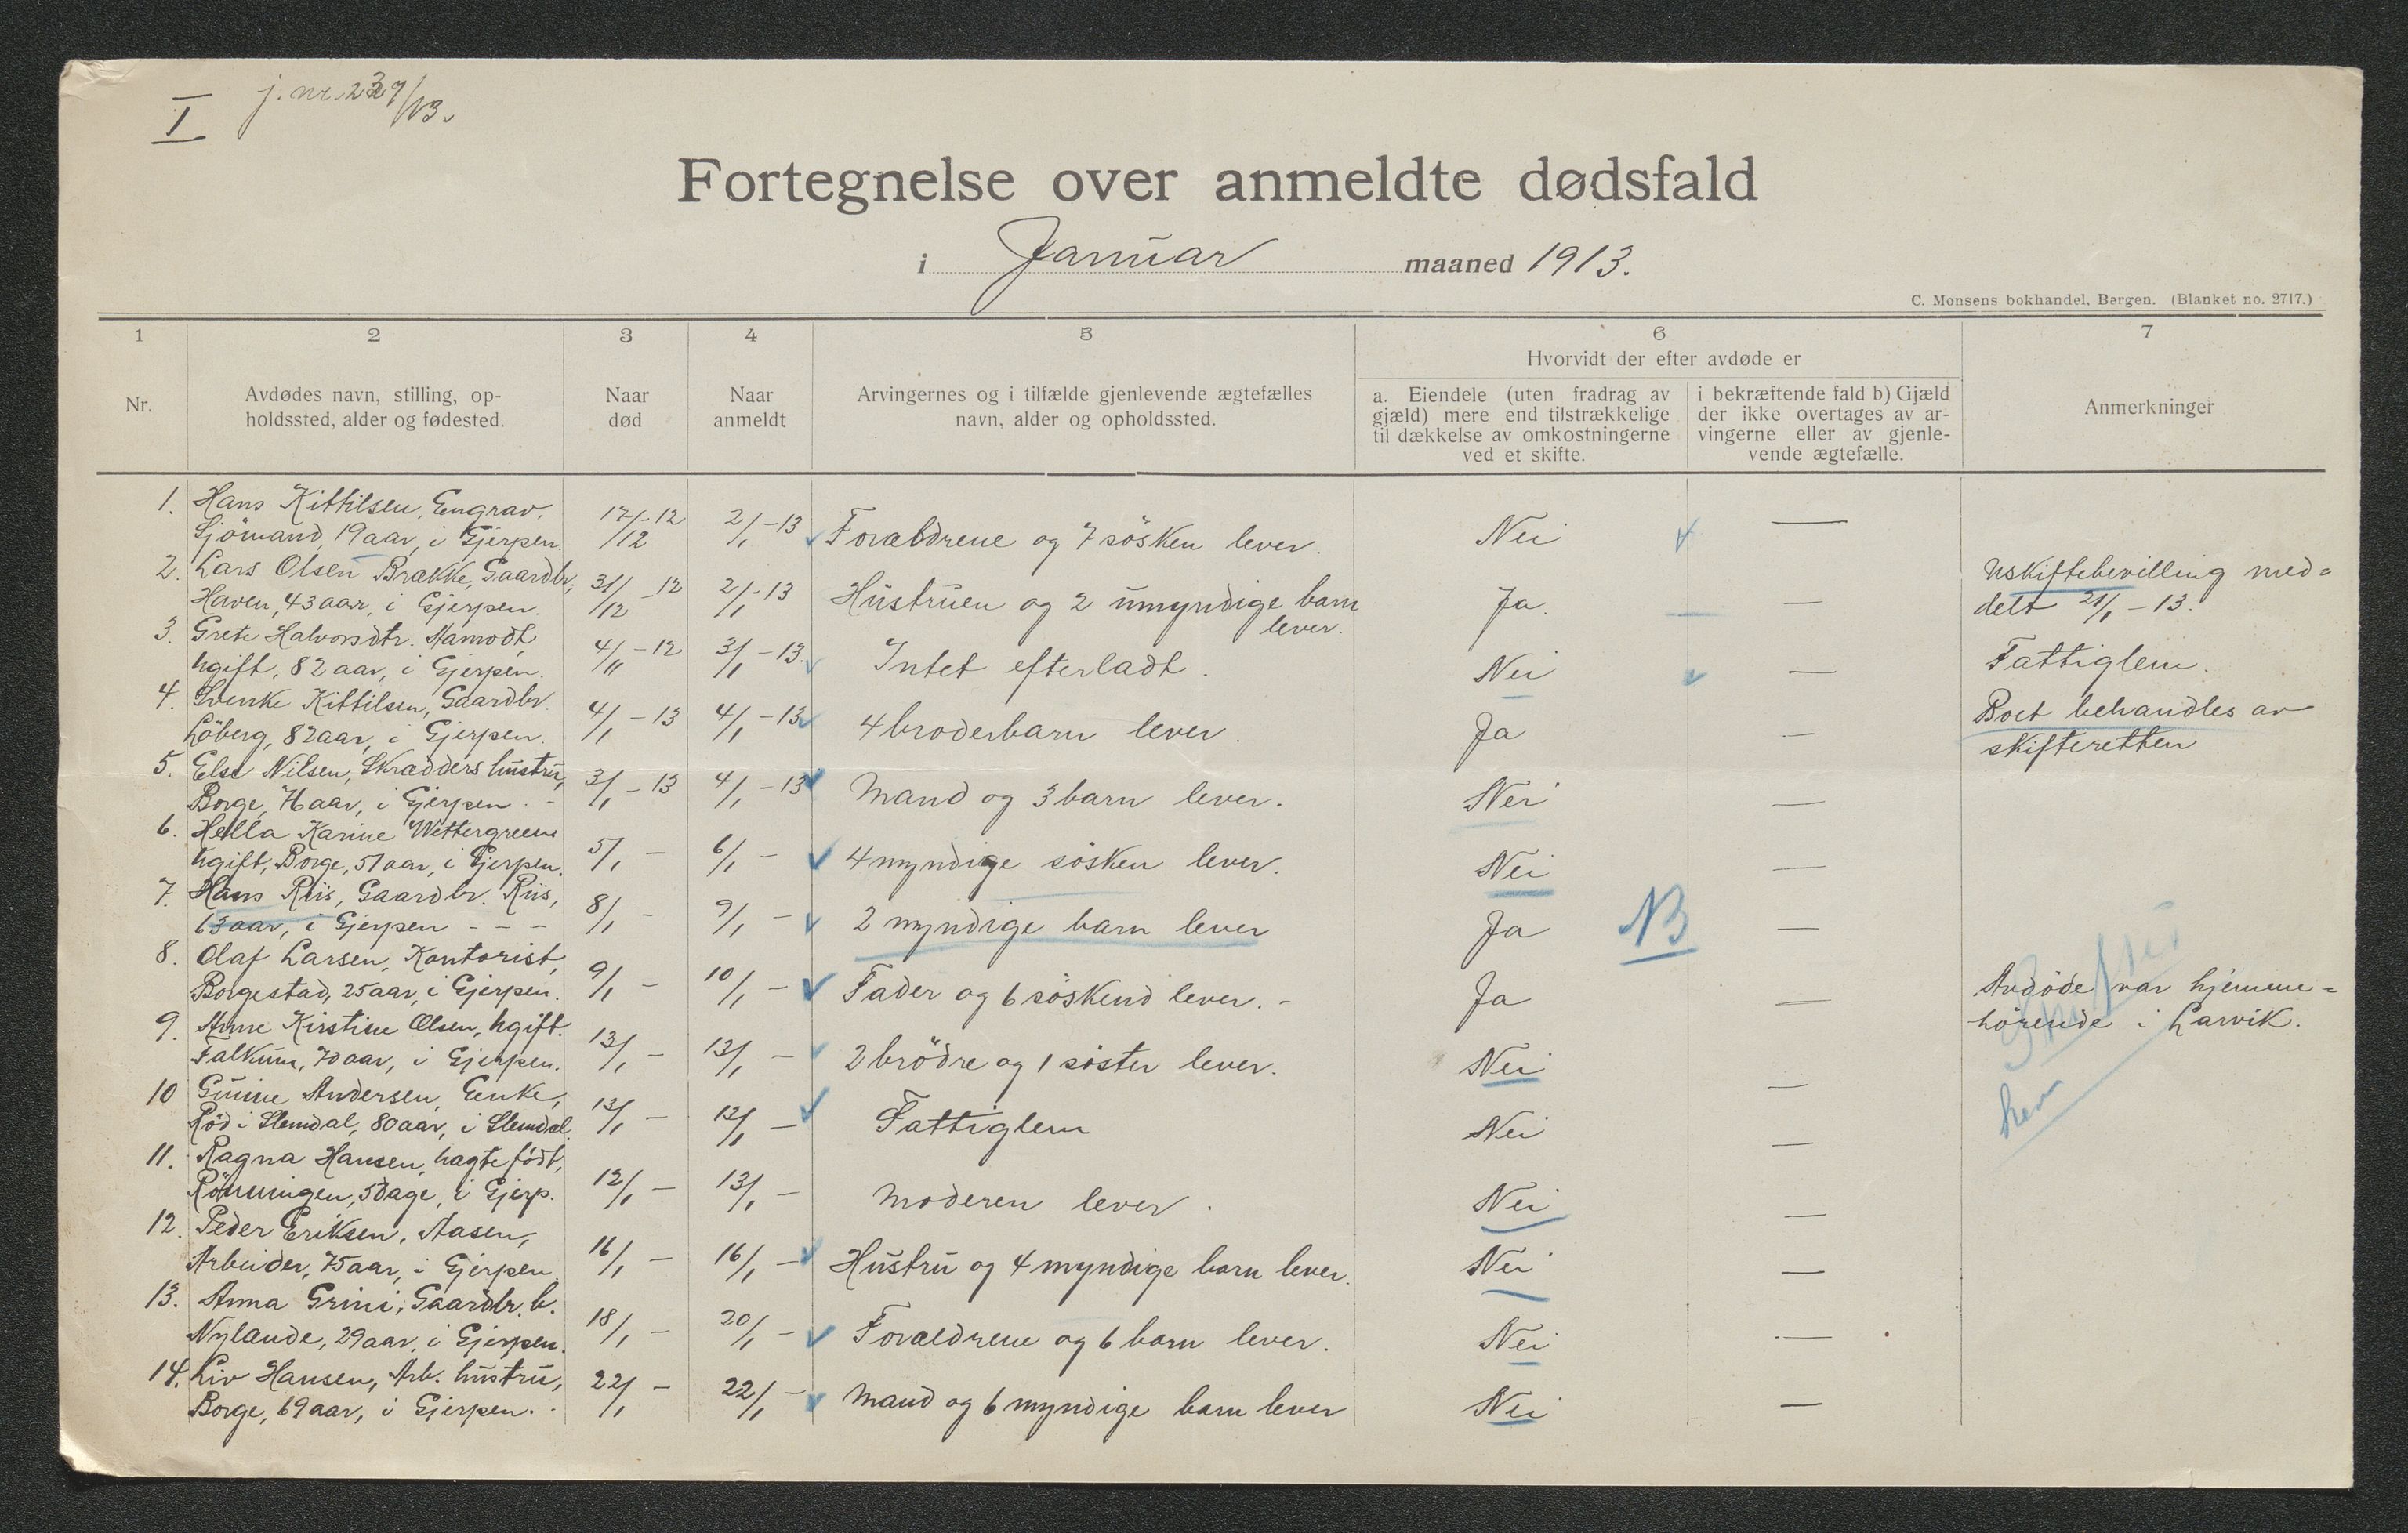 I
j. nr. 237/13.
Fortegnelse over anmeldte dødsfald
i Januar maaned 1913.
C. Monsens bokhandel, Bergen. (Blanket no. 2717.)
1 2 3 4 5 6 7
Nr.
Avdødes navn, stilling, op-
holdssted, alder og fødested.
Naar
død
Naar
anmeldt
Arvingernes og i tilfælde gjenlevende ægtefælles
navn, alder og opholdssted.
Hvorvidt der efter avdøde er
a. Eiendele (uten fradrag av
gjæld) mere end tilstrækkelige
til dækkelse av omkostningerne
ved et skifte.
i bekræftende fald b) Gjæld
der ikke overtages av ar-
vingerne eller av gjenle-
vende ægtefælle.
Anmerkninger
1. Hans Kittilsen, Engrav,
Sjömand, 19 aar, i Gjerpen. 17/12 -12 2/1 -13 Forældrene og 7 søsken lever. Nei —
2. Lars Olsen Brække, Gaardbr.,
Haven, 43 aar, i Gjerpen. 31/12 -12 2/1 -13 Hustruen og 2 umyndige barn
lever. Ja. — Uskiftebevilling med=
delt 21/1 -13.
3. Grete Halvorsdtr.
Ugift, 82 aar, i Gjerpen. 4/11 -12 3/1 -13. Intet efterladt. Nei — Fattiglem.
4. Svenke Kittilsen, Gaardbr.
Löberg, 82 aar, i Gjerpen. 4/1 -13 4/1 -13 4 broderbarn lever. Ja — Boet behandles av
skifteretten
5. Else Nilsen, Skrædders hustru,
Borge, 76 aar, i Gjerpen. - 3/1 -13 4/1 -13 Mand og 3 barn lever. Nei —
6. Hella Karine Wettergreen
Ugift, Borge, 51 aar, i Gjerpen. 5/1 - 6/1 - 4 myndige søsken lever. Nei —
7. Hans Riis, Gaardbr. Riis,
63 aar, i Gjerpen - - - 8/1 - 9/1 - 2 myndige barn lever Ja NB —
8. Olaf Larsen, Kontorist,
Borgestad, 25 aar, i Gjerpen. 9/1 - 10/1 - Fader og 6 søskend lever. - Ja — Avdøde var hjemme=
hørende i Larvik.
9. Anne Kirstine Olsen, Ugift.
Falkum, 70 aar, i Gjerpen. 13/1 - 13/1 - 2 brödre og 1 söster lever. Nei —
her
10 Gunine Andersen, Enke,
Röd i Slemdal, 80 aar, i Slemdal. 13/1 - 13/1 - Fattiglem Nei —
11. Ragna Hansen, uægte född,
Rönningen, 5 dage, i Gjerp. 12/1 - 13/1 - Moderen lever. Nei —
12. Peder Eriksen, Aasen,
Arbeider, 75 aar, i Gjerpen. 16/1 - 16/1 - Hustru og 4 myndige barn lever. Nei —
13. Anna Grini, Gaardbr. h.
Nylænde, 29 aar, i Gjerpen. 18/1 - 20/1 - Forældrene og 6 barn lever. Nei —
14. Liv Hansen, Arb. hustru,
Borge, 69 aar, i Gjerpen. - 22/1 - 22/1 - Mand og 6 myndige barn lever Nei —